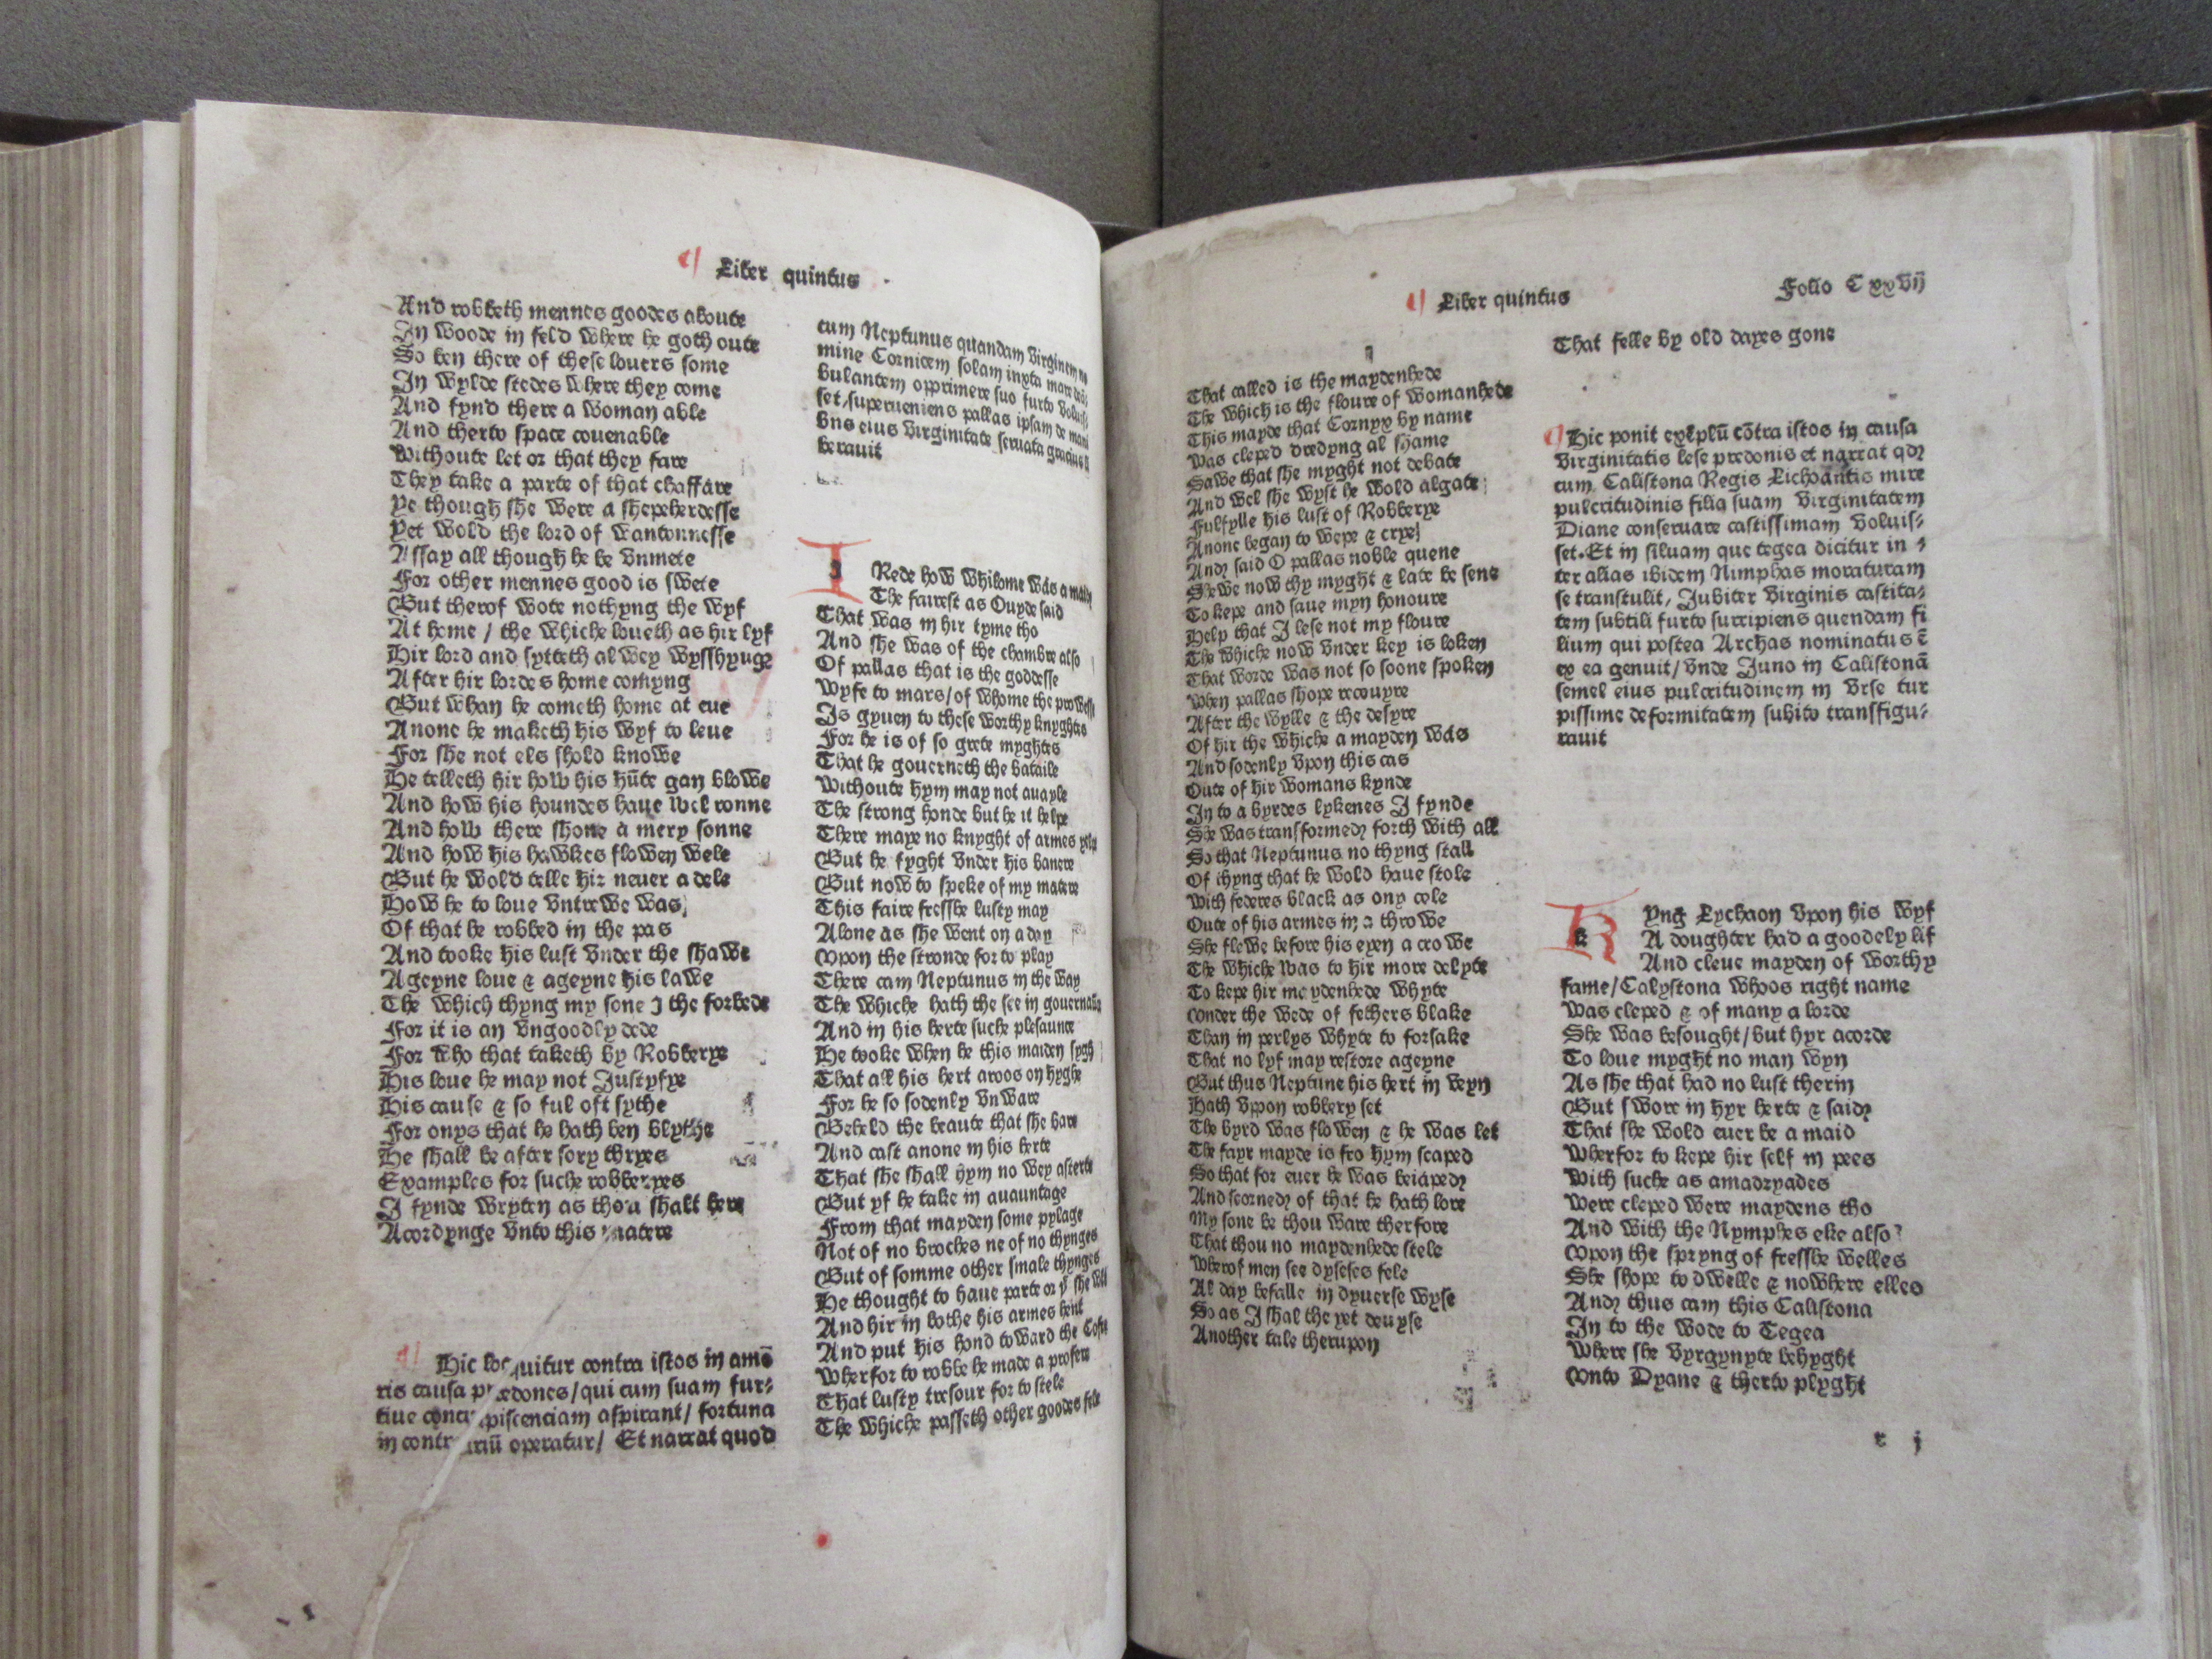 Liber quintus
And robbeth mennes goodes aboute
In woode in feld where he goth oute
So ben there of these louers some
In wylde stedes where they come
And fynd there a woman able
And therto space couenable
Withoute let or that they fare
They take a parte of that chaffare
Ye though she were a shepeherdesse
Yet wold the lord of wantonnesse
Assay all though he be vnmete
For other mennes good is swete
But therof wote nothyng the wyf
At home / the whiche loueth as hir lyf
Hir lord and sytteth alwey wysshyng
After hir lordes home comyng
But whan he cometh home at eue
Anone he maketh his wyf to leue
For she not els shold knowe
He telleth hir how his hūte gan blowe
And how his houndes haue wel ronne
And how there shone a mery sonne
And how his hawkes flowen wele
But he wold telle hir neuer a dele
How he to loue vntrewe was
Of that he robbed in the pas
And tooke his lust vnder the shawe
Ageyne loue & ageyne his lawe
The which thyng my sone I the forbede
For it is an vngoodly dede
For who that taketh by Robberye
His loue he may not Justyfye
His cause & so ful oft sythe
For onys that he hath ben blythe
He shall be after sory thryes
Examples for suche robberyes
I fynde wryten as thou shalt here
Acordynge vnto this matere
Hic loquitur contra istos in amō
ris causa predones/ qui cum suam fur⸗
tiue concupiscenciam aspirant/ fortuna
in contrariū operatur/ Et narrat quod
cum Neptunus quandam virginem no
mine Cornicem solam iuxta mare
bulantem opprimere suo furto
set/ superueniens pallas ipsam de
bus eius virginitate seruata gracius
berauit
I Rede how whilome was a mayde
The fairest as Ouyde said
That was in hir tyme tho
And she was of the chambre also
Of pallas that is the goddesse
Wyfe to mars/ of whome the prowesse
Is gyuen to these worthy knyghtes
For he is of so grete myghtes
That he gouerneth the bataile
Withoute hym may not auayle
The strong honde but he it helpe
There maye no knyght of armes yelp
But he fyght vnder his banere
But now to speke of my matere
This faire fresshe lusty may
Alone as she went on a day
Vpon the stronde for to play
There cam Neptunus in the way
The whiche hath the see in gouernaūce
And in his herte suche plesaunce
He tooke when he this maiden sygh
That all his hert aroos on hyghe
For he so sodenly vnware
Beheld the beaute that she bare
And cast anone in his herte
That she shall hym no wey asterte
But yf he take in auauntage
From that mayden some pylage
Not of no broches ne of no thynges
But of somme other smale thynges
He thought to haue parte or yͭ she
And hir in bothe his armes hent
And put his hond toward the
Wherfor to robbe he made a profere
That lusty tresour for to stele
The whiche passeth other goodes fele
Liber quintus
Folio C xxvij
That called is the maydenhede
The which is the floure of womanhede
This mayde that Cornyx by name
Was cleped dredyng al shame
Sawe that she myght not debate
And wel she wyst he wold algate
Fulfylle his lust of Robberye
Anone began to wepe & crye
And said O pallas noble quene
Shewe now thy myght & late be sene
To kepe and saue myn honoure
Help that I lese not my floure
The whiche now vnder key is loken
That worde was not so soone spoken
When pallas shope recouyre
After the wylle & the desyre
Of hir the whiche a mayden was
And sodenly vpon this cas
Oute of hir womans kynde
In to a byrdes lykenes I fynde
She was transformed forth with all
So that Neptunus no thyng stall
Of thyng that he wold haue stole
With federes black as ony cole
Oute of his armes in a throwe
She flewe before his eyen a crowe
The whiche was to hir more delyte
To kepe hir maydenhede whyte
Vnder the wede of fethers blake
Than in perlys whyte to forsake
That no lyf may restore ageyne
But thus Neptune his hert in veyn
Hath vpon robbery set
The byrd was flowen & he was let
The fayr mayde is fro hym scaped
So that for euer he was beiaped
And scorned of that he hath lore
My sone be thou ware therfore
That thou no maydenhede stele
Wherof men see dyseses fele
Al day befalle in dyuerse wyse
So as I shal the yet deuyse
Another tale therupon
That felle by old dayes gone
Hic ponit exēplū cōtra istos in causa
virginitatis lese predonis et narrat qd
cum Calistona Regis Lichoantis mire
pulcritudinis filia suam virginitatem
Diane conseruare castissimam voluis⸗
set. Et in siluam que tegea dicitur in⸗
ter alias ibidem Nimphas moraturam
se transtulit, Jubiter virginis castita⸗
tem subtili furto surripiens quendam fi
lium qui postea Archas nominatus ē
ex ea genuit/ vnde Juno in Calistonā
semel eius pulcritudinem in vrse tur
pissime deformitatem subito transfigu⸗
rauit
Kyng Lychaon vpon his wyf
A doughter had a goodely lif
And cleue mayden of worthy
fame/ Calystona whoos right name
Was cleped & of many a lorde
She was besought/ but hyr acorde
To loue myght no man wyn
As she that had no lust therin
But swore in hyr herte & said
That she wold euer be a maid
Wherfor to kepe hir self in pees
With suche as amadryades
Were cleped were maydens tho
And with the Nymphes eke also
Vpon the spryng of fresshe welles
She shope to dwelle & nowhere elles
And thus cam this Calistona
In to the wode to Tegea
Where she vyrgynyte behyght
Vnto Dyane & therto plyght
r j